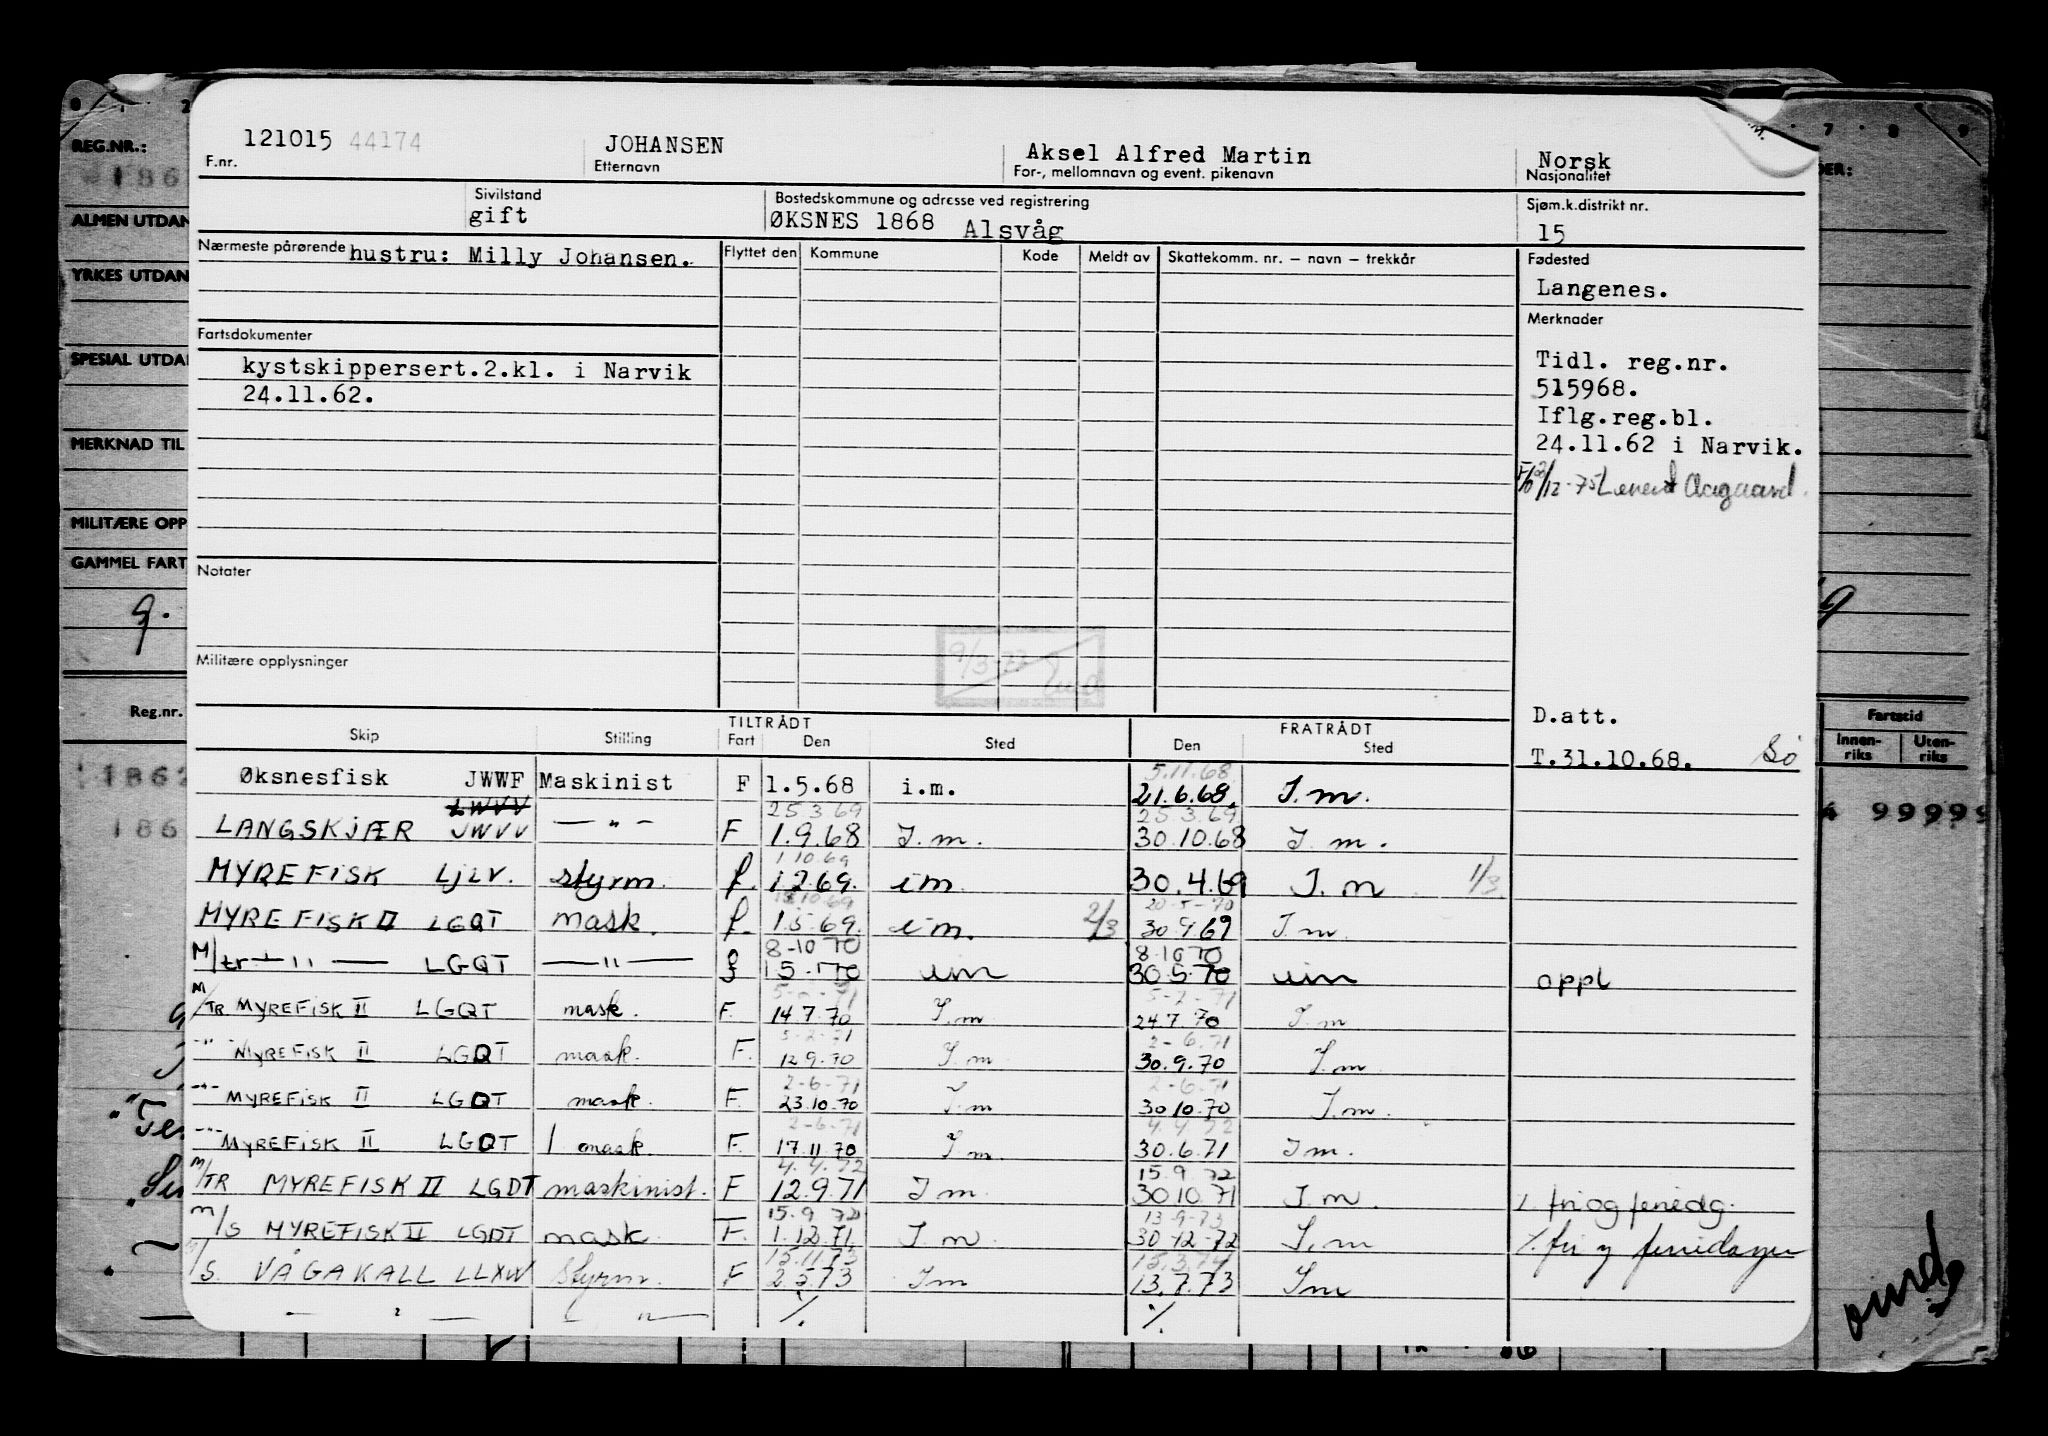 121015 44174
F.nr.
JOHANSEN
Etternavn
Aksel Alfred Martin
For-, mellomnavn og event. pikenavn
Norsk
Nasjonalitet
Sivilstand
gift
Bostedskommune og adresse ved registrering
ØKSNES 1868 Alsvåg
Sjøm.k.distrikt nr.
15
Nærmeste pårørende hustru: Milly Johansen.
Flyttet den Kommune Kode Meldt av Skattekomm. nr. – navn – trekkår
Fødested
Langenes.
Fartsdokumenter
kystskippersert.2.kl. i Narvik
24.11.62.
Merknader
Tidl. reg.nr.
515968.
Iflg.reg.bl.
24.11.62 i Narvik.
Aagaard.
Notater
Militære opplysninger
D.att.
T.31.10.68. Sø
TILTRÅDT FRATRÅDT
Skip Stilling Fart Den Sted Den Sted
5.11.68
Øksnesfisk JWWF Maskinist F 1.5.68 i.m. 21.6.68. I.m.
LWVV 25 3 69 25.3.69
LANGSKJÆR JWVV — " — F 1.9.68 I.m. 30.10.68 I.m.
1 10 69
MYREFISK LJLV. styrm. f. 1.2.69. im 30.4.69 I.m 1/3
10.69 20-5-70
MYREFISK II LGQT mask. f. 1.5.69. im. 2/3 30.9.69 I.m
8-10 70 8.10 70
M/tr — " — LGQT — " — f 1 5-70 im 30.5.70 im oppl
5-2-71
M/TR MYREFISK II LGQT mask. F. 14.7.70 I.m 24.7.70 I.m
5-2-71 2-6.71
— " — MYREFISK II LGQT mask. F. 12.9.70 I.m 30.9.70 I.m
2-6-71 2-6.71
— " — MYREFISK II LGQT mask. F. 23.10.70 I.m 30.10.70 I.m.
2-6.71 4.4.72
— " — MYREFISK II LGQT 1 mask. F. 17.11.70 I.m 30.6.71 I.m.
4.4.72 15.9.72
M/TR MYREFISK II LGDT maskinist. F 12.9.71 I.m. 30.10.71 I.m ./. fri og feriedg.
15.9 72 13-9-73
M/S MYREFISK II LGDT mask F. 1.12.71 I.m 30-12-72 I.m ./. fri og feriedager
15.11.73 15.3.74
M/S. VÅGAKALL LLXW Styrm. F 2.5.73 I.m 13.7.73 I.m
— " — — " — ./. ./.
REG.NR.:
186
ALMEN UTDAN
YRKES UTDAN
SPESIAL UTDA
MERKNAD TIL
MILITÆRE OPP
GAMMEL FART
9.
Reg.nr.
1862
186
7 8 9
DER:
Fartstid
Innenriks Utenriks
99999